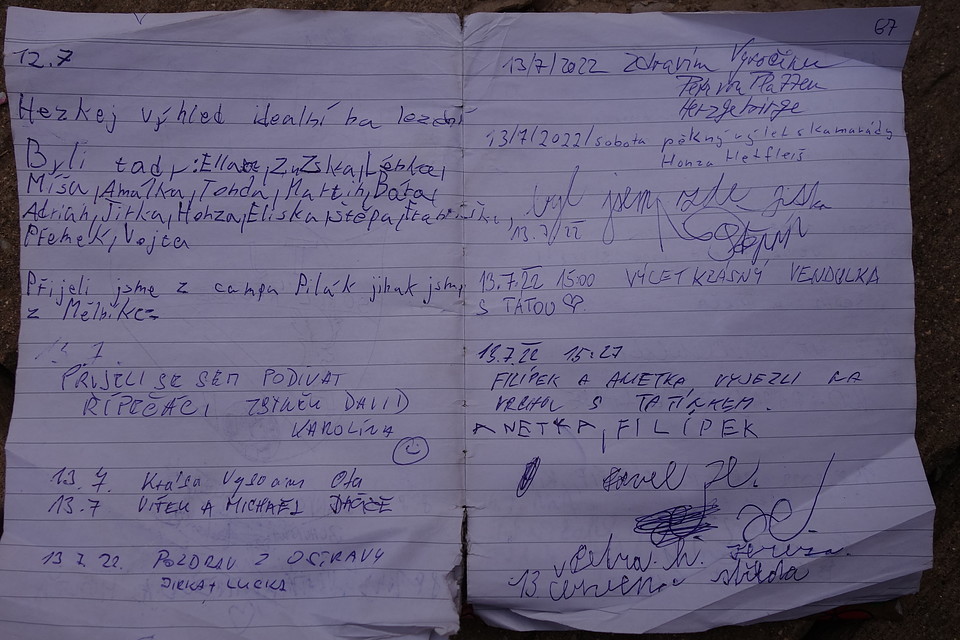 12.7
Hezkej výhled idealní na lezení
Byli tady: Ella, Zuzska, Lenka,
Míša, Amálka, Tonda, Martin, Bára,
Adrián, Jirka, Honza, Eliška, Štěpa,
Přemek, Vojta
Přijeli jsme z campu Pilák jinak jsme
z Mělníka
13.7.
PŘIJELI SE SEM PODÍVAT
ŘÍPEČÁCI, ZBYNĚK DAVID
KAROLÍNA
13.7. Krása Ota
13.7 VÍTEK A MICHAEL DAČICE
13.7.22. POZDRAV Z OSTRAVY
JIRKA + LUCKA
67
13/7/2022 Zdravím Vysočinu
Herzgebirge
13/7/2022/sobota pěkný výlet s kamarády
Honza
byl jsem zde
13.7/22 Štěpán
13.7.22 15:00 VÝLET KRÁSNÝ VENDULKA
S TÁTOU
13.7.22 15:27
FILÍPEK A ANETKA VYJEZLI NA
VRCHOL S TATÍNKEM.
ANETKA, FILÍPEK
Pavel H.
Petra H. Tereza
13 července středa